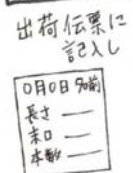 出荷伝票に
記入し
0月0日 名前
長さ
末口
本数